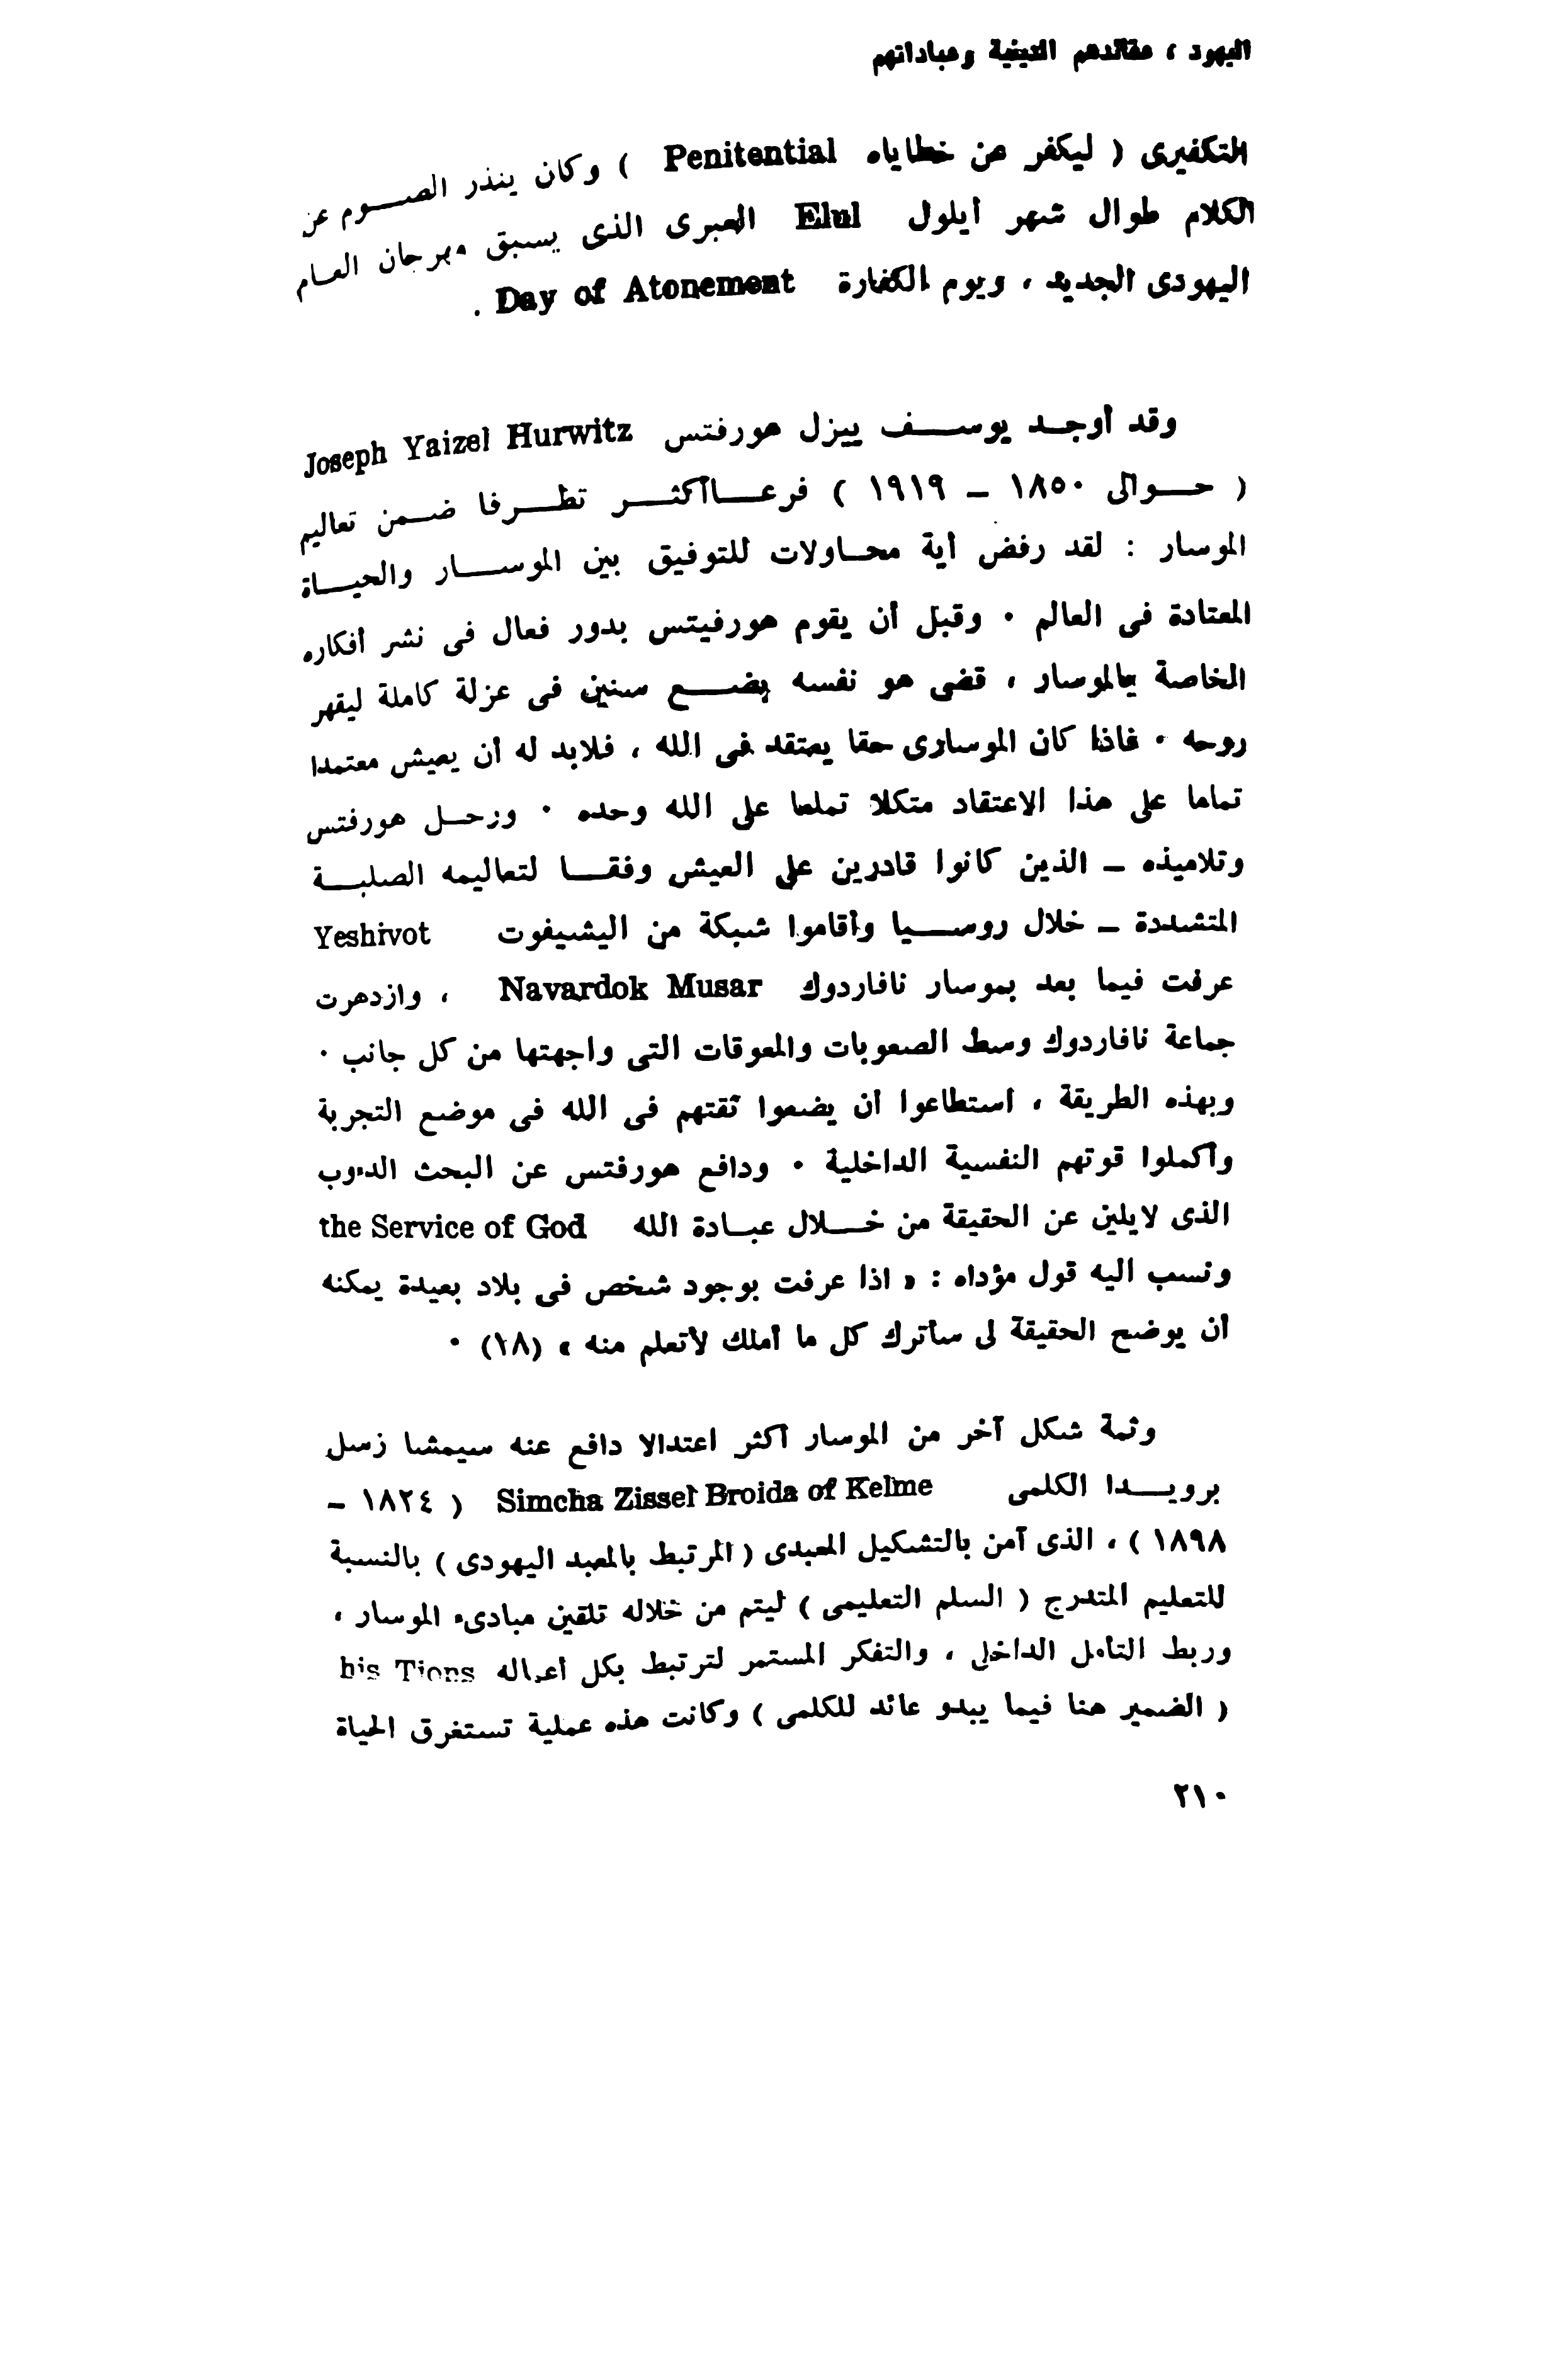 اليهود ، عقائدهم الدينية وعباداتهم
التكفيرى ( ليكفر عن خطاياه Penitential ) وكان ينذر الصـــوم عن
الكلام طوال شهر أيلول Elul العبرى الذى يسبق مهرجان العـام
اليهودى الجديد ، ويوم الكفارة Day of Atonement .
وقد أوجـد يوســـف ييزل هورفتس Joseph Yaizel Hurwitz
( حـــوالى ١٨٥٠ – ١٩١٩ ) فرعـــاأكثـــر تطـــرفا ضـمن تعاليم
الموسار : لقد رفض أية محـاولات للتوفيق بين الموســـار والحيـــاة
المعتادة فى العالم ٠ وقبل أن يقوم هورفيتس بدور فعال فى نشر أفكاره
الخاصة بالموسار ، قضى هو نفسه بضـــع سنين فى عزلة كاملة ليقهر
روحه ٠ فاذا كان الموسارى حقا يعتقد فى الله ، فلابد له أن يعيش معتمدا
تماما على هذا الاعتقاد متكلا تماما على الله وحده ٠ ورحـل هورفتس
وتلاميذه – الذين كانوا قادرين على العيش وفقـــا لتعاليمه الصلبـــة
المتشددة – خلال روســـيا وأقاموا شبكة من اليشيفوت Yeshivot
عرفت فيما بعد بموسار نافاردوك Navardok Musar ، وازدهرت
جماعة نافاردوك وسط الصعوبات والمعوقات التى واجهتها من كل جانب ٠
وبهذه الطريقة ، استطاعوا أن يضعوا ثقتهم فى الله فى موضع التجربة
وأكملوا قوتهم النفسية الداخلية ٠ ودافع هورفتس عن البحث الدءوب
الذى لايلين عن الحقيقة من خـــلال عبـادة الله the Service of God
ونسب اليه قول مؤداه : « اذا عرفت بوجود شخص فى بلاد بعيدة يمكنه
أن يوضح الحقيقة لى سأترك كل ما أملك لأتعلم منه » (١٨) ٠
وثمة شكل آخر من الموسار أكثر اعتدالا دافع عنه سيمشا زسل
برويـــدا الكلمى Simcha Zissel Broida of Kelme ( ١٨٢٤ –
١٨٩٨ ) ، الذى آمن بالتشكيل المعبدى ( المرتبط بالمعبد اليهودى ) بالنسبة
للتعليم المتدرج ( السلم التعليمى ) ليتم من خلاله تلقين مبادىء الموسار ،
وربط التأمل الداخلى ، والتفكر المستمر لترتبط بكل أعماله his Tions
( الضمير هنا فيما يبدو عائد للكلمى ) وكانت هذه عملية تستغرق الحياة
٢١٠